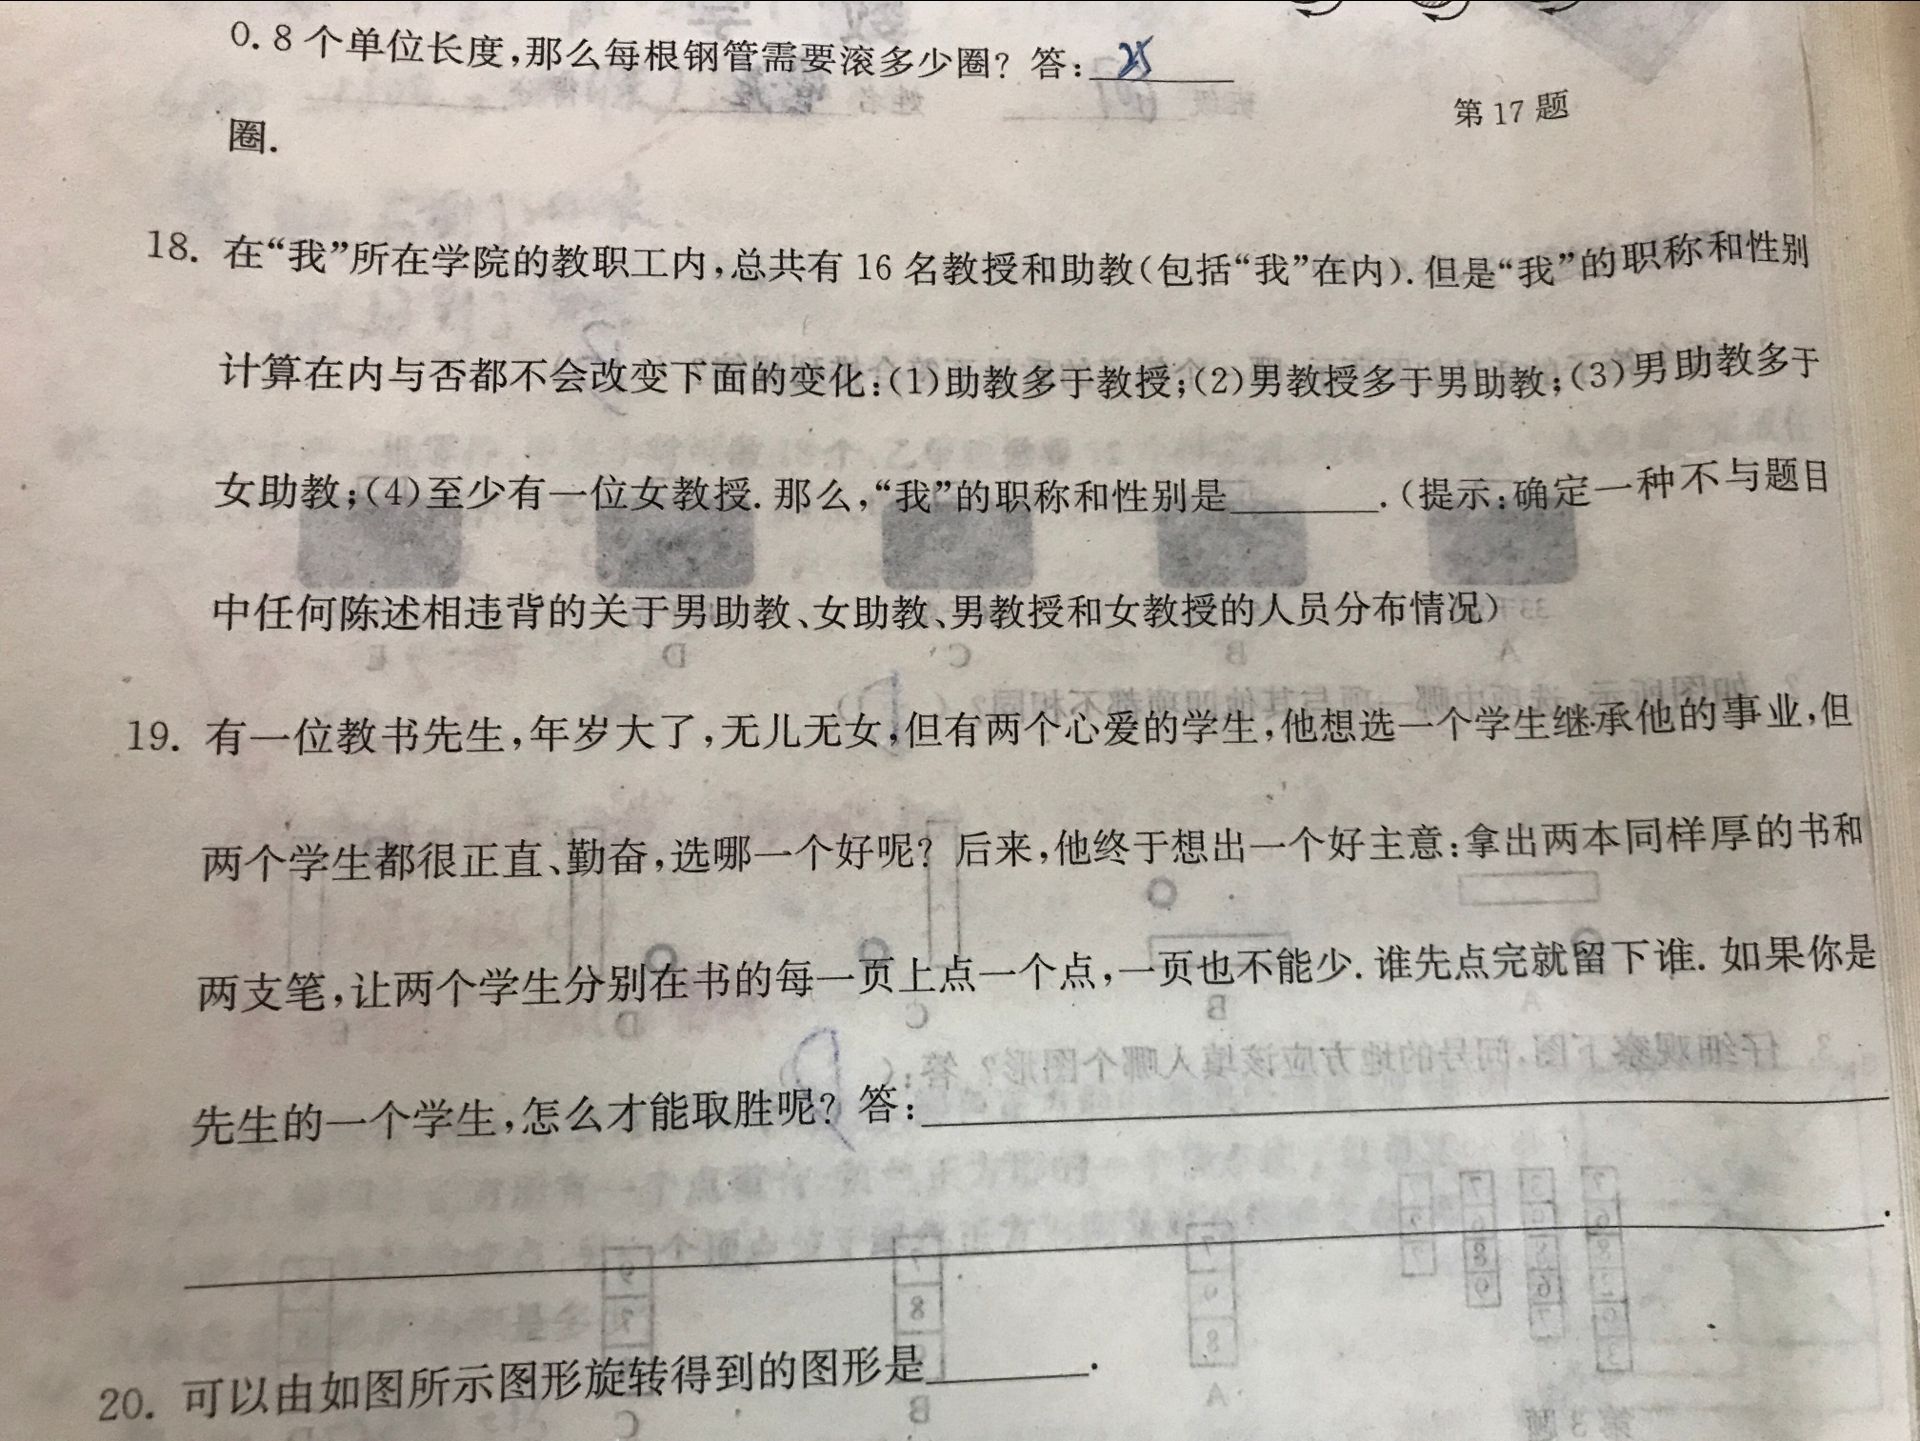 0.8个单位长度,那么每根钢管需要滚多少圈? 答: 25
圈.
第17题
18. 在“我”所在学院的教职工内,总共有16名教授和助教(包括“我”在内).但是“我”的职称和性别
计算在内与否都不会改变下面的变化:(1)助教多于教授;(2)男教授多于男助教;(3)男助教多于
女助教;(4)至少有一位女教授.那么,“我”的职称和性别是______.(提示:确定一种不与题目
中任何陈述相违背的关于男助教、女助教、男教授和女教授的人员分布情况)
19. 有一位教书先生,年岁大了,无儿无女,但有两个心爱的学生,他想选一个学生继承他的事业,但
两个学生都很正直、勤奋,选哪一个好呢? 后来,他终于想出一个好主意:拿出两本同样厚的书和
两支笔,让两个学生分别在书的每一页上点一个点,一页也不能少.谁先点完就留下谁.如果你是
先生的一个学生,怎么才能取胜呢? 答:______
______.
20. 可以由如图所示图形旋转得到的图形是______.